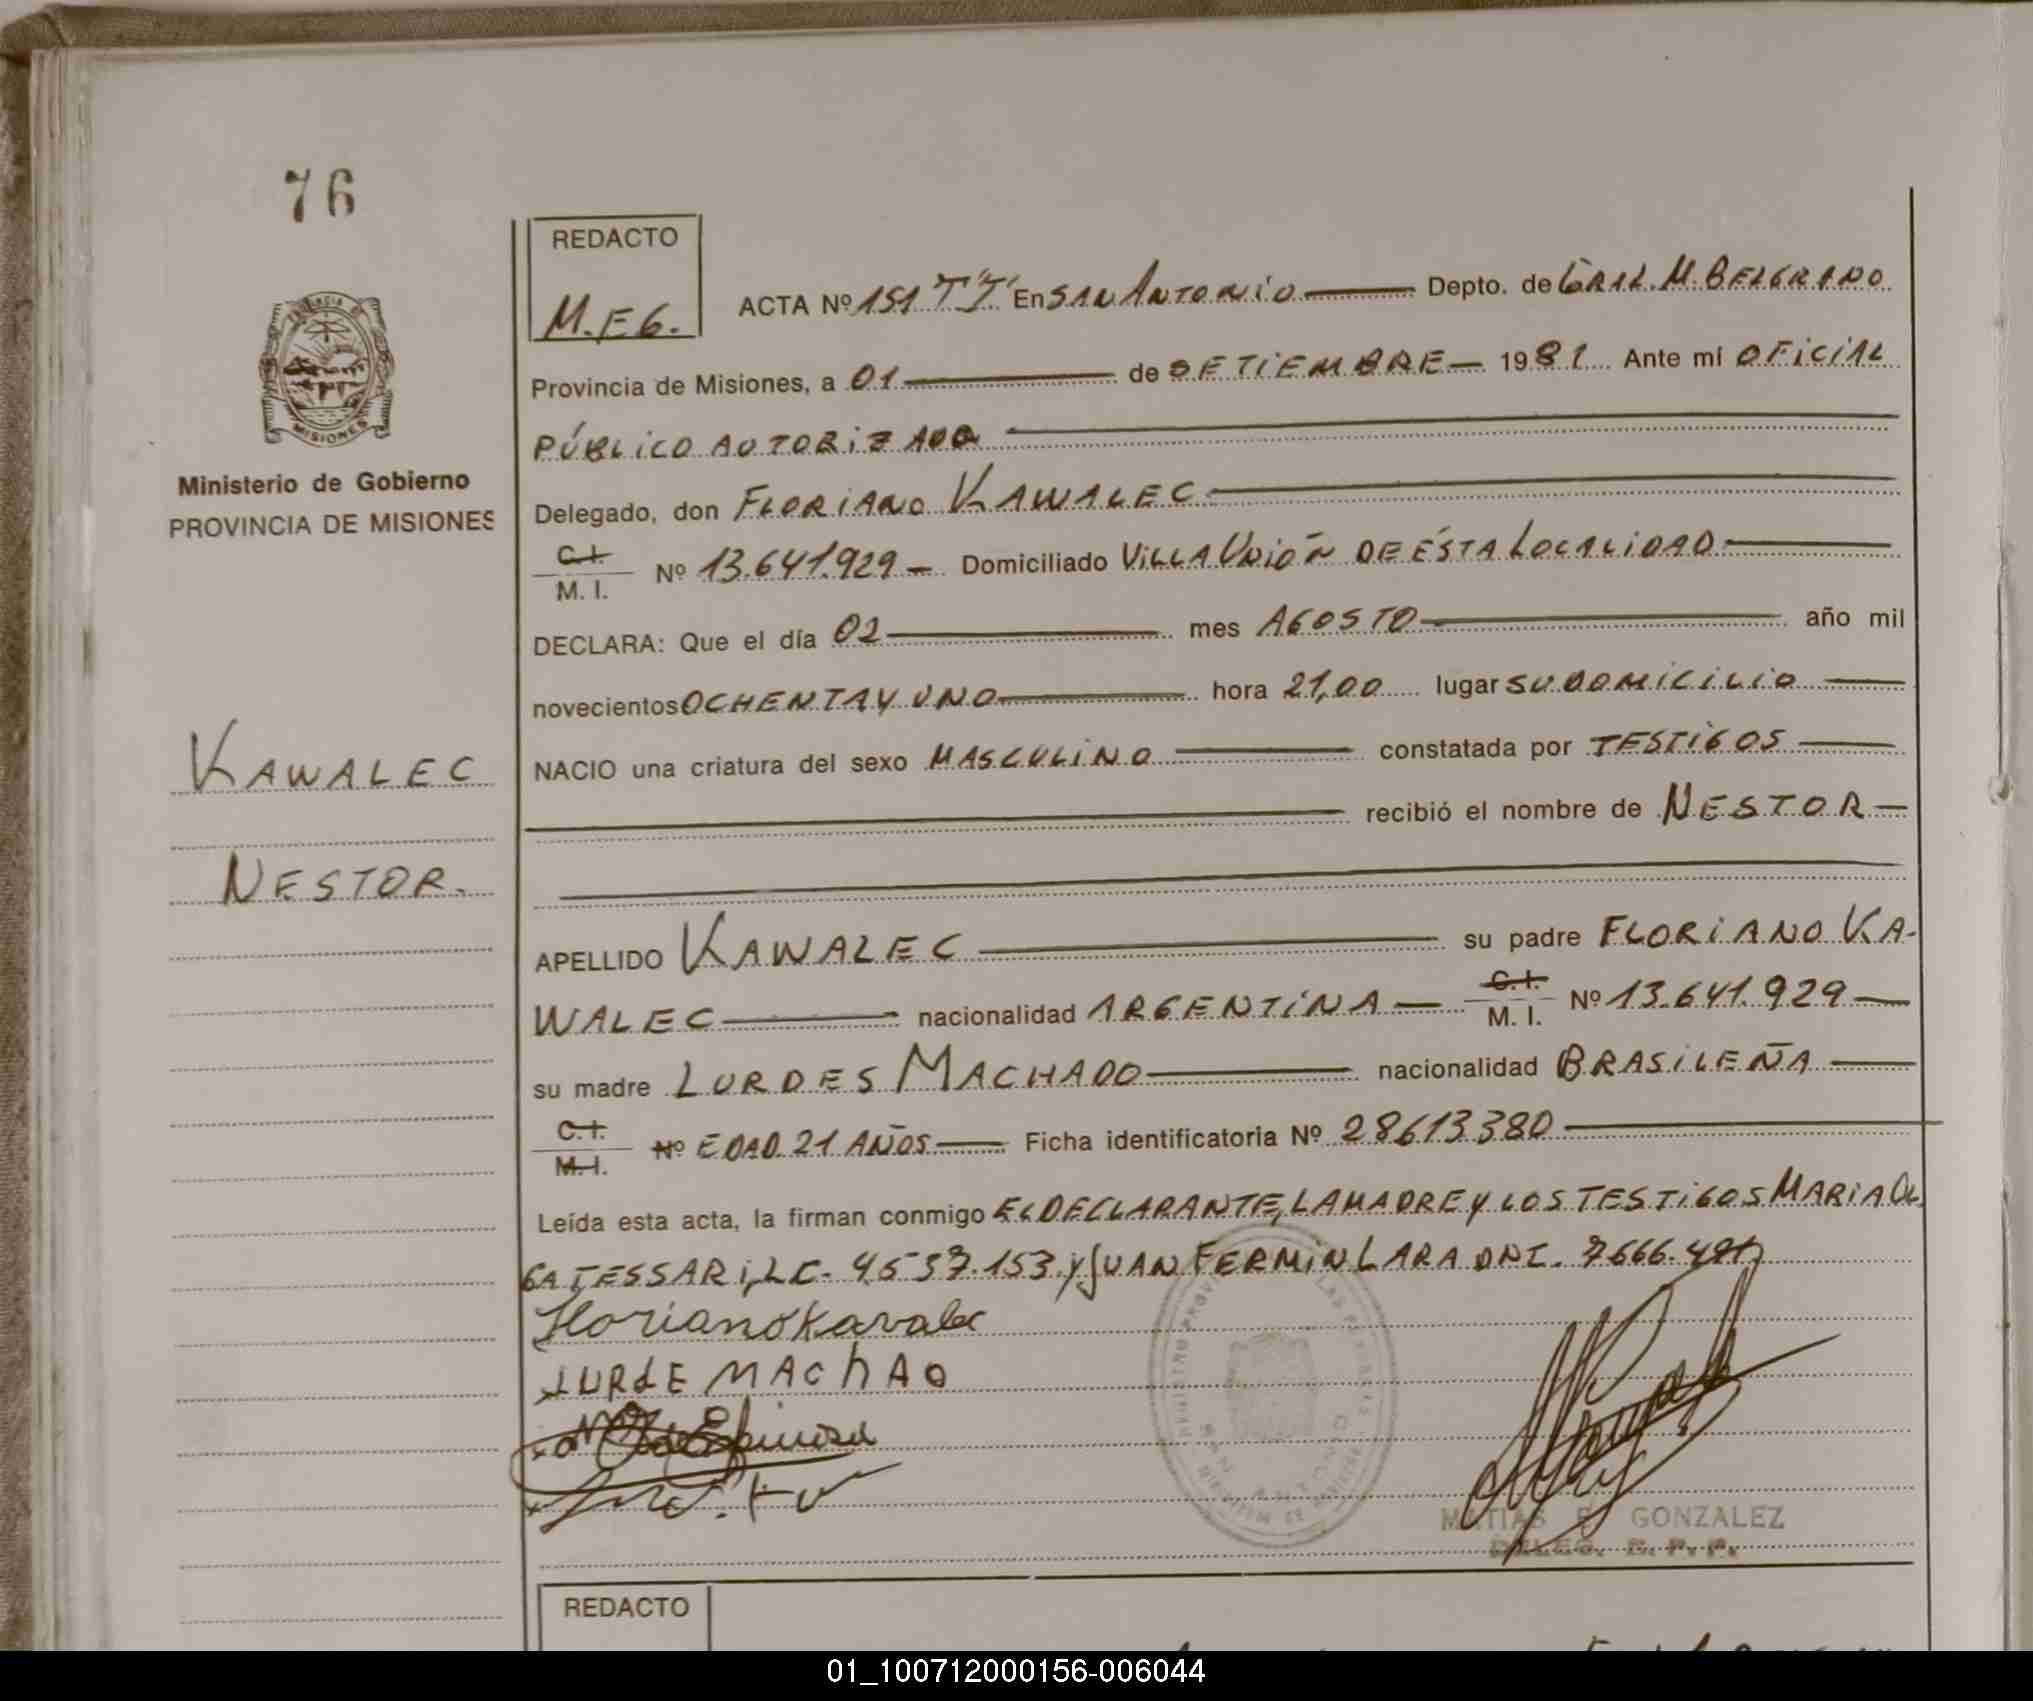 76
REDACTO
M.E G.
ACTA Nº 151 "TT" En SAN ANTONIO Depto. de GRAL. M. BELGRANO
Provincia de Misiones, a 01 de SETIEMBRE 1981 Ante mí OFICIAL
PÚBLICO AUTORIZADO
Delegado, don FLORIANO KAWALEC
C.I. M. I. Nº 13.641.929 Domiciliado VILLA UNIÓN DE ÉSTA LOCALIDAD
DECLARA: Que el día 02 mes AGOSTO año mil
novecientos OCHENTA Y UNO hora 21,00 lugar SU DOMICILIO
NACIO una criatura del sexo MASCULINO constatada por TESTIGOS
recibió el nombre de NESTOR
APELLIDO KAWALEC su padre FLORIANO KA-
WALEC nacionalidad ARGENTINA C.I. M. I. Nº 13.641.929
su madre LURDES MACHADO nacionalidad BRASILEÑA
C.I. M.I. Nº EDAD 21 AÑOS Ficha identificatoria Nº 28613380
Leída esta acta, la firman conmigo EL DECLARANTE, LA MADRE Y LOS TESTIGOS MARIA OL
GA TESSARI, LC. 4537.153 y JUAN FERMIN LARA DNI. 7666.
Floriano Kavalec
LURDE MACHAO
MATIAS E. GONZALEZ
DELEG. R. P. P.
REDACTO
PROVINCIA
MISIONES
Ministerio de Gobierno
PROVINCIA DE MISIONES
KAWALEC
NESTOR.
SAN ANTONIO
01_100712000156-006044